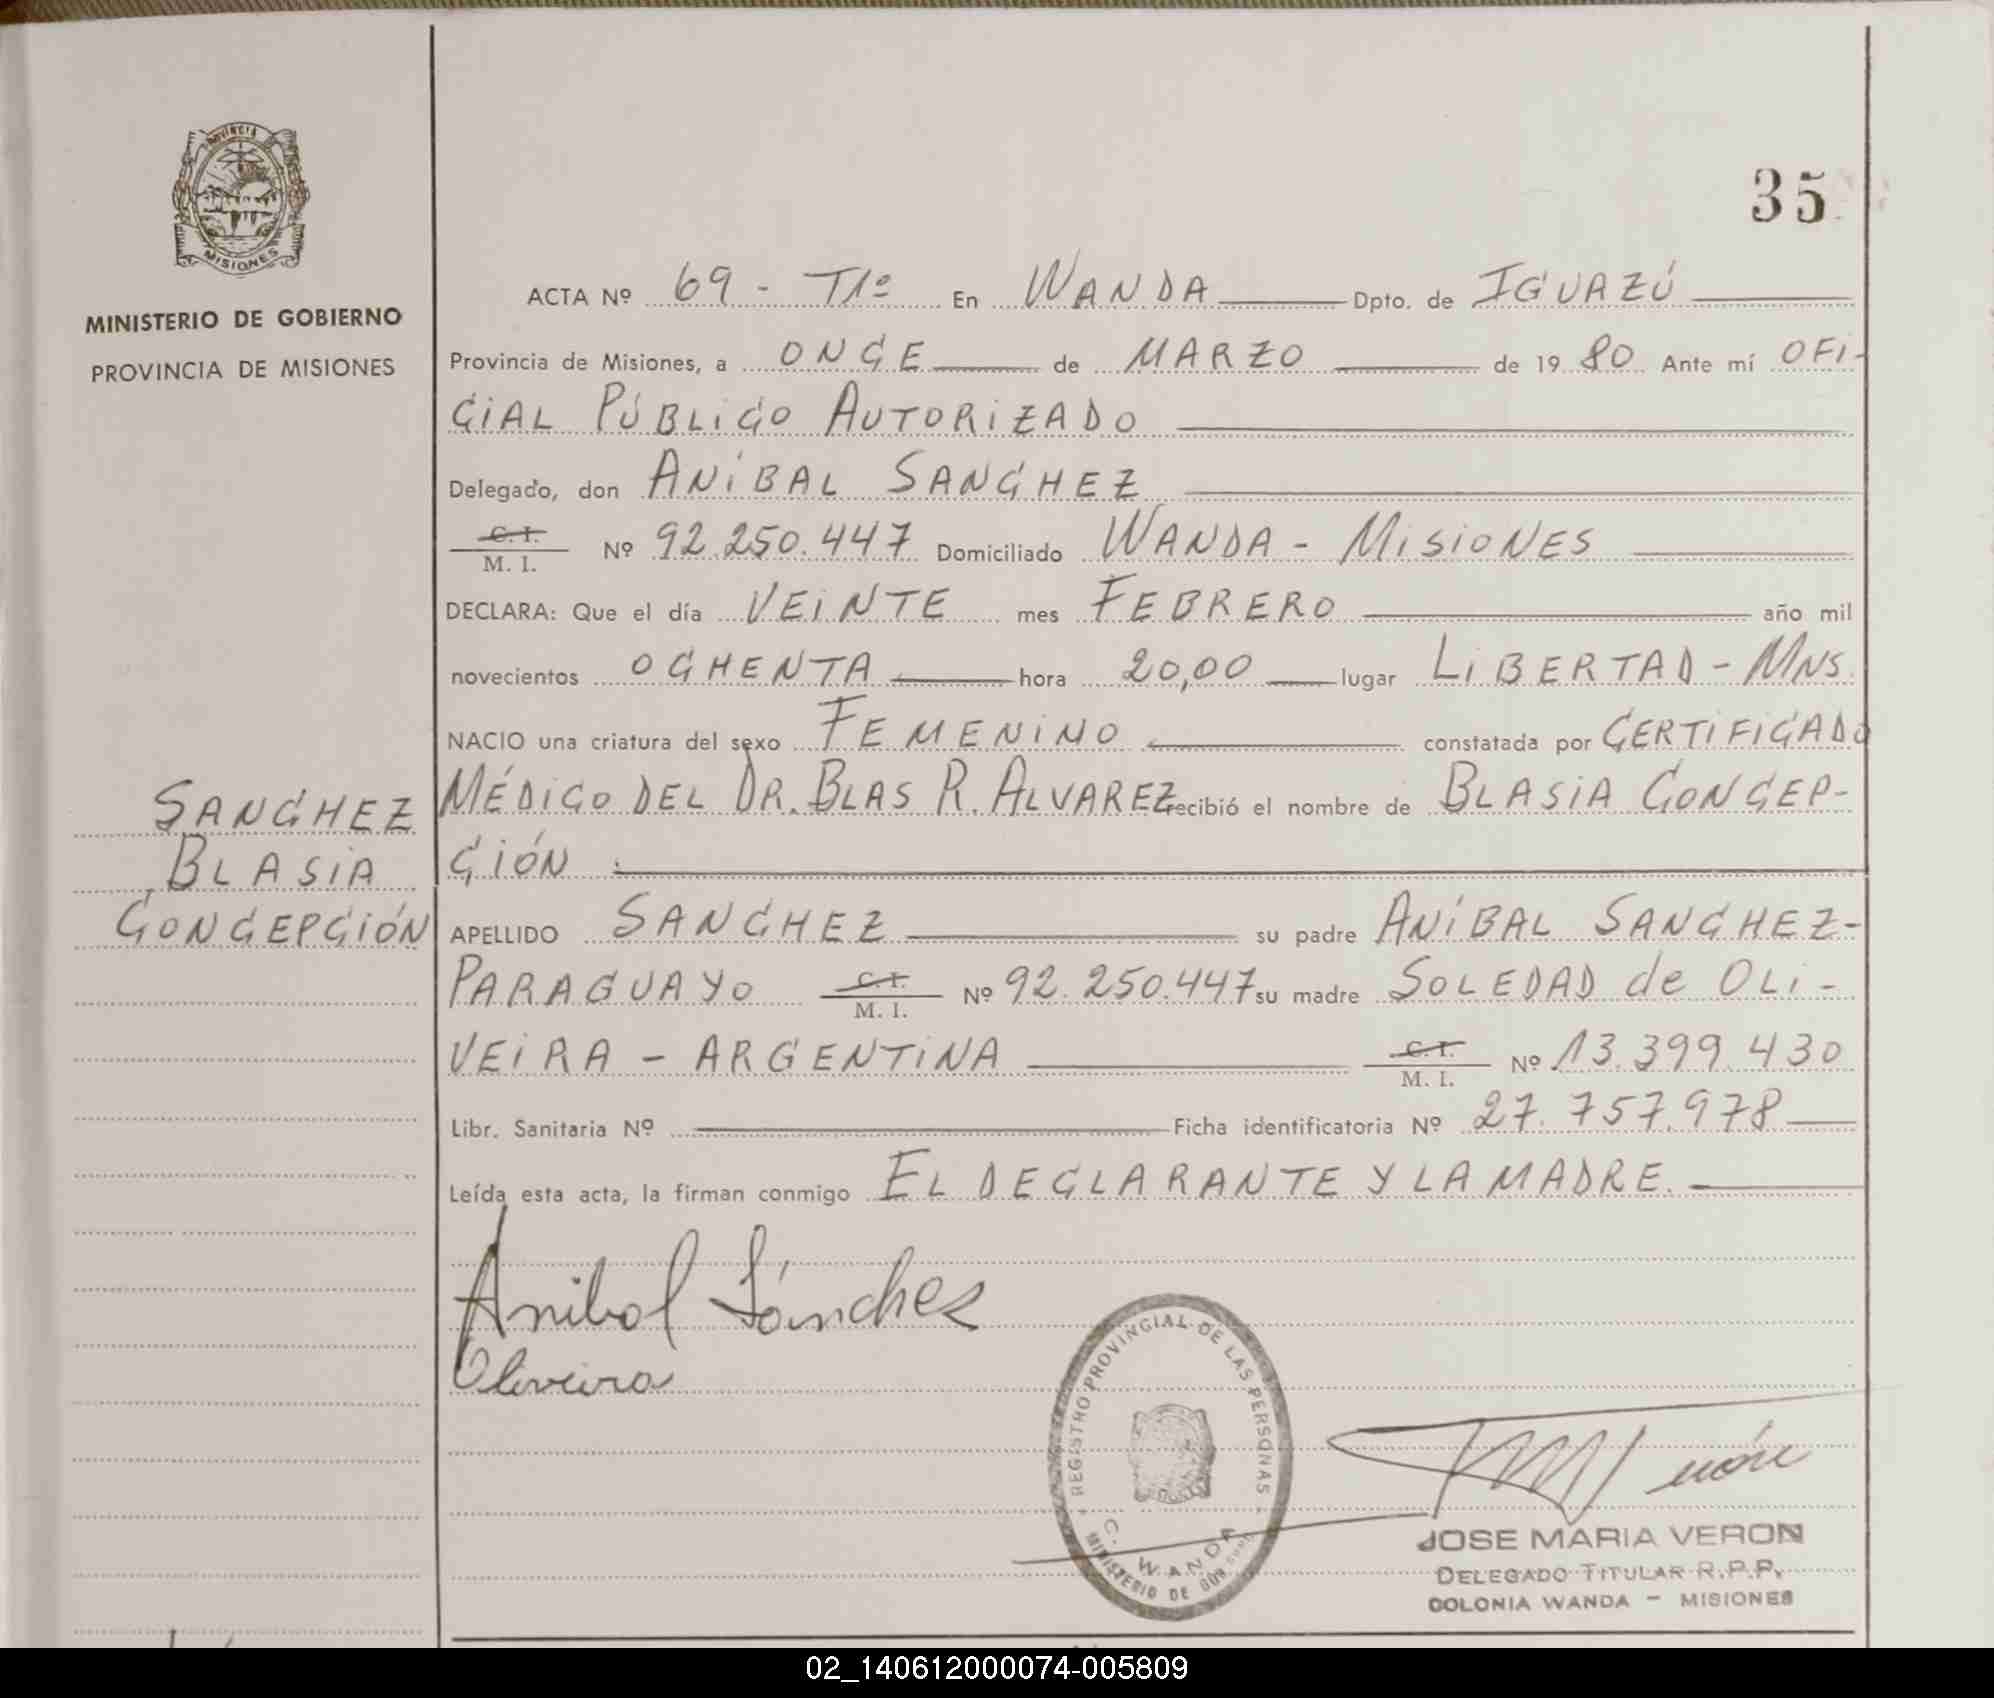 35
PROVINCIA
MISIONES
MINISTERIO DE GOBIERNO
PROVINCIA DE MISIONES
ACTA Nº 69 - T1º En WANDA Dpto. de IGUAZÚ
Provincia de Misiones, a ONCE de MARZO de 1980 Ante mí OFI-
CIAL PÚBLICO AUTORIZADO
Delegado, don ANÍBAL SANCHEZ
C. I.
M. I. Nº 92.250.447 Domiciliado WANDA - MISIONES
DECLARA: Que el día VEINTE mes FEBRERO año mil
novecientos OCHENTA hora 20,00 lugar LIBERTAD - MNS.
NACIO una criatura del sexo FEMENINO constatada por CERTIFICADO
MÉDICO DEL DR. BLAS R. ALVAREZ recibió el nombre de BLASIA CONCEP-
CIÓN
SANCHEZ
BLASIA
CONCEPCIÓN
APELLIDO SANCHEZ su padre ANÍBAL SANCHEZ-
PARAGUAYO C. I. M. I. Nº 92.250.447 su madre SOLEDAD de OLI-
VEIRA - ARGENTINA C. I. M. I. Nº 13.399.430
Libr. Sanitaria Nº Ficha identificatoria Nº 27.757.978
Leída esta acta, la firman conmigo EL DECLARANTE Y LA MADRE.
Anibal Sánchez
Oliveira
REGISTRO PROVINCIAL DE LAS PERSONAS
C. WANDA
MINISTERIO DE GOB
JOSE MARIA VERON
DELEGADO TITULAR R.P.P.
COLONIA WANDA - MISIONES
02_140612000074-005809